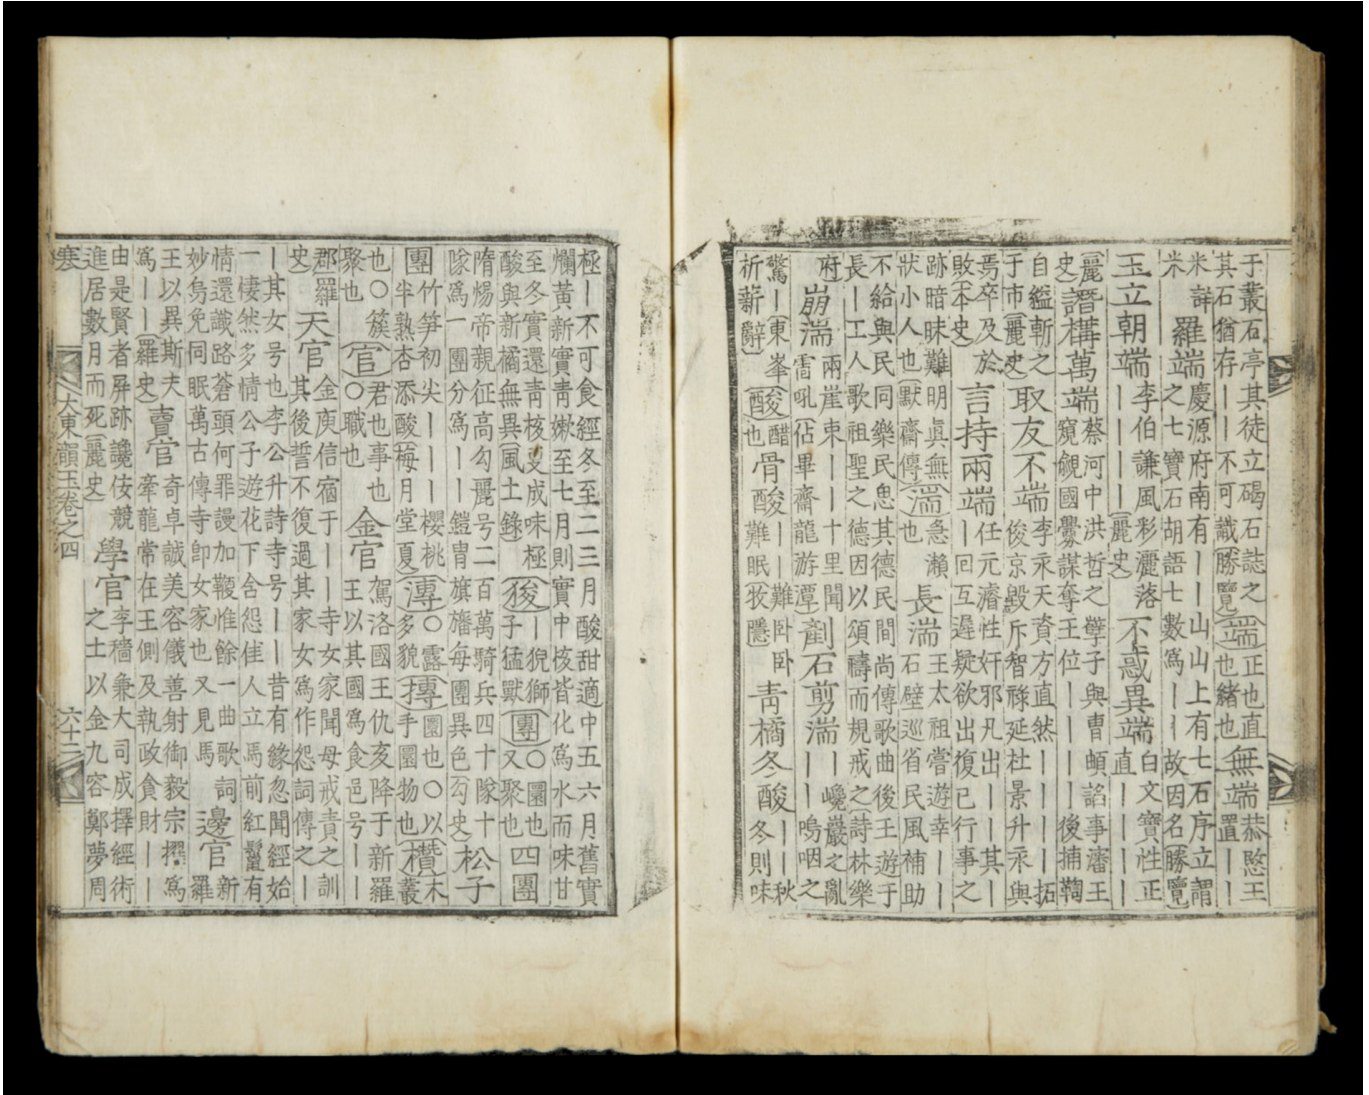 于叢石亭其徒立碣石誌之其石猶存丨丨不可識勝覽端正也直也緒也無端恭愍王立置丨丨
米詳米羅端慶源府南有丨丨山山上有七石序立謂之七寶石胡語七數爲丨丨故因名勝覽
玉立朝端李伯謙風彩灑落丨丨丨丨麗史不惑異端白文寶性正直丨丨丨丨
麗史譖構萬端蔡河中洪哲之孼子與曹頔謟事瀋王窺覦國釁謀奪王位丨丨丨丨後捕鞫
自縊斬之于市麗史取友不端李永天資方直然丨丨丨丨拓俊京毁斥智祿延杜景升永與
焉卒及於敗本史言持兩端任元濬性奸邪凡出丨丨其丨丨回互遲疑欲出復已行事之
跡暗昧難明眞無狀小人也默齋傳湍急瀨也長湍王太祖嘗遊幸丨丨石壁巡省民風補助
不給與民同樂民思其德民間尚傳歌曲後王遊于長丨工人歌祖聖之德因以頌禱而規戒之詩林樂
府崩湍兩崖束丨丨十里聞雷吼佔畢齋龍游潭剷石剪湍丨丨巉巖之亂丨丨嗚咽之
驚丨東峯祈薪辭酸醋也骨酸丨丨難卧卧難眠牧隱靑橘冬酸丨丨秋冬則味
極丨不可食經冬至二三月酸甜適中五六月舊實爛黃新實靑嫩至七月則實中核皆化爲水而味甘
至冬實還靑核更成味極酸與新橘無異風土錄狻丨猊獅子猛獸團○圓也又聚也四團
隋煬帝親征高勾麗号二百萬騎兵四十隊十隊爲一團分爲丨丨鎧冑旗旛每團異色勾史松子
團竹笋初尖丨丨丨櫻桃半熟杏添酸梅月堂夏漙○露多貌摶圜也○以手圜物也欑木叢
也○簇聚也官君也事也○職也金官駕洛國王仇亥降于新羅王以其國爲食邑号丨丨
郡羅史天官金庾信宿于丨丨寺女家聞母戒責之訓其後誓不復過其家女爲作怨詞傳之丨
丨其女号也李公升詩寺号丨丨昔有緣忽聞經始一悽然多情公子遊花下含怨佳人立馬前紅鬣有
情還識路蒼頭何罪謾加鞭惟餘一曲歌詞妙免同眠萬古傳寺即女家也又見馬邊官新羅
王以異斯夫爲丨丨羅史賣官奇卓誠美容儀善射御毅宗擢爲牽龍常在王側及執政貪財丨丨
由是賢者屏跡讒佞競進居數月而死麗史學官李穡兼大司成擇經術之士以金九容鄭夢周
寒 大東韻玉卷之四 六十二